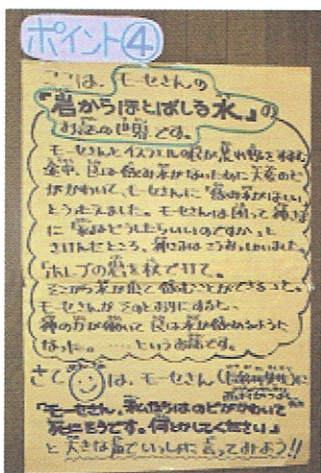 ポイント④
ここは、モーセさんの
『岩からほとばしる水』の
お話の世界です。
モーセさんとイスラエルの民が荒れ野をすすむ
途中、民は飲み水がないために大変のど
がかわいて、モーセさんに「飲み水がほしい」
とうったえました。モーセさんは困って神さま
に「私はどうしたらいいのですか」と
さけんだところ、神さまはこうおっしゃいました。
「ホレブの岩を杖で打て。
そこから水が出て飲むことができる」と。
モーセさんがそのとおりにすると、
神の力が働いて民は水が飲めるよう
なった。……というお話です。
さて は、モーセさん
『モーセさん、私たちはのどがかわいて
死にそうです。何とかしてください』
と大きな声でいっしょに言ってみよう!!